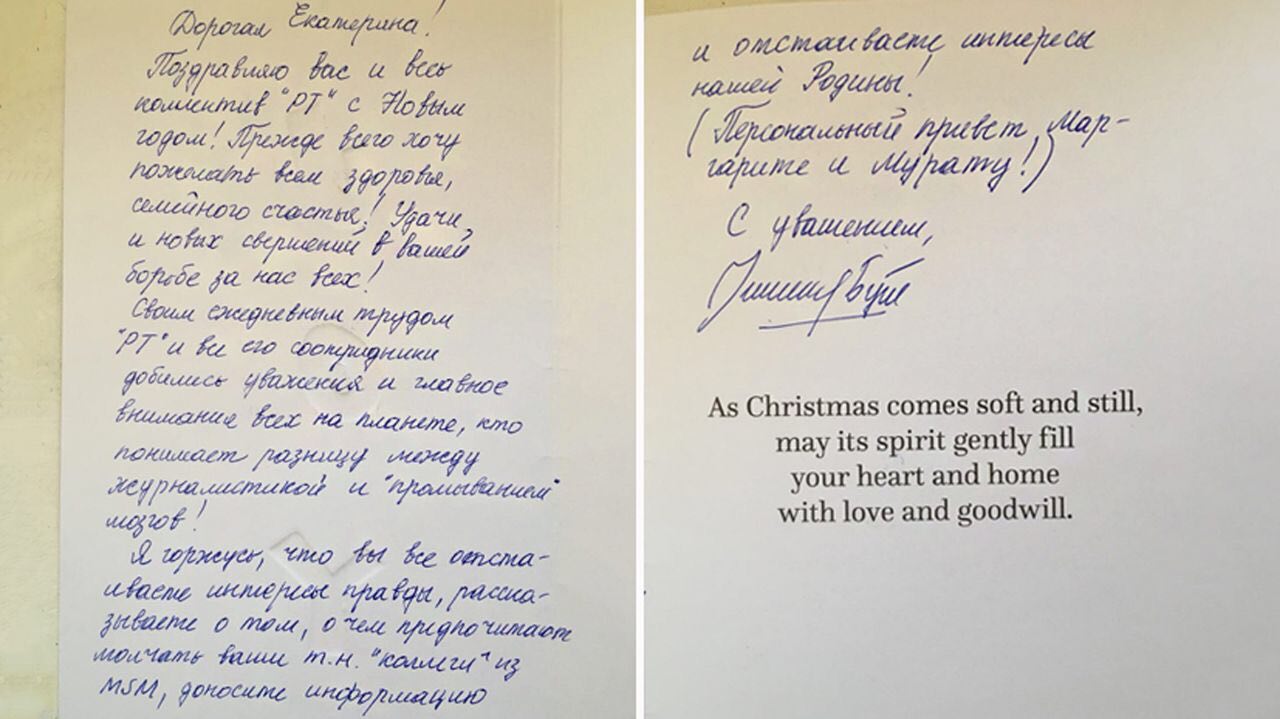 Дорогая Екатерина!
Поздравляю вас и весь
коллектив "РТ" с Новым
годом! Прежде всего хочу
пожелать всем здоровья,
семейного счастья! Удачи
и новых свершений в вашей
борьбе за нас всех!
Своим ежедневным трудом
"РТ" и все его сотрудники
добились уважения и главное
внимания всех на планете, кто
понимает разницу между
журналистикой и "промыванием"
мозгов!
Я горжусь, что вы все отста-
иваете интересы правды, расска-
зываете о том, о чем предпочитают
молчать ваши т.н. "коллеги" из
MSM, доносите информацию
и отстаиваете интересы
нашей Родины!
(Персональный привет Мар-
гарите и Мурату!)
С уважением,
Бут
As Christmas comes soft and still,
may its spirit gently fill
your heart and home
with love and goodwill.